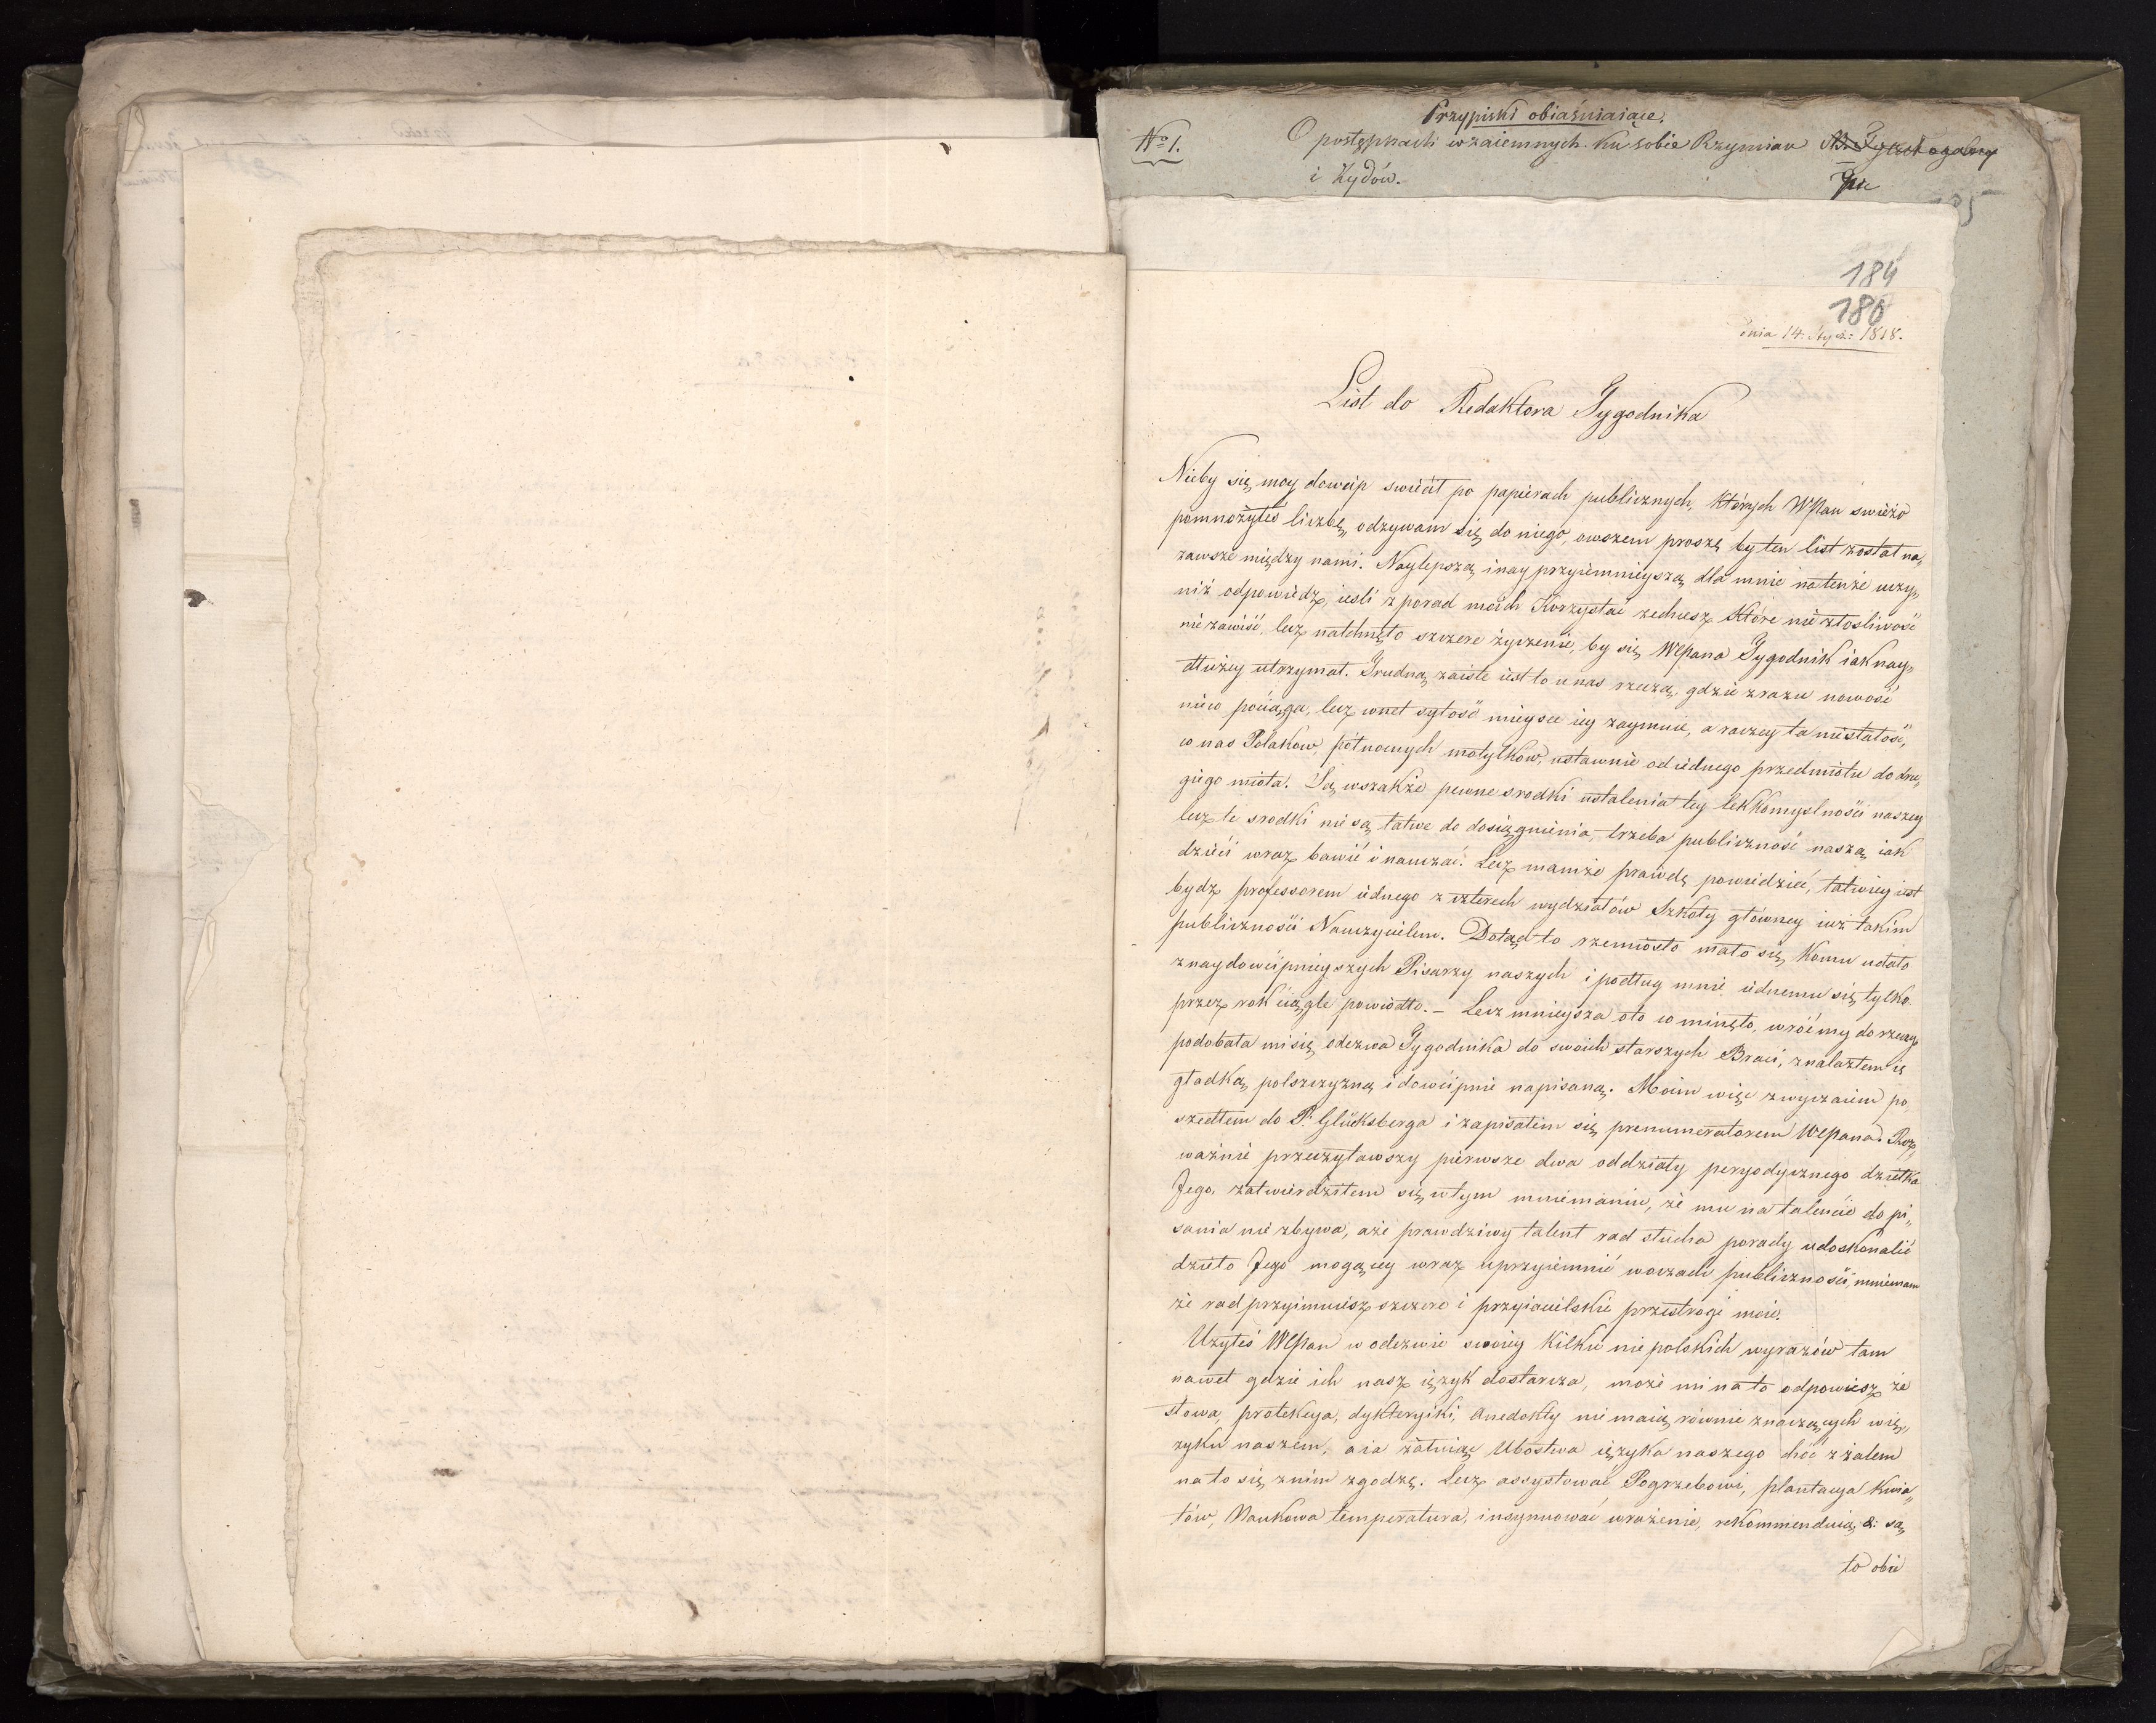 Przypiski obiaśniaiące.
Nº 1.
O postępkach wzaiemnych ku sobie Rzymian
i Żydów.
184
180
dnia 14. Stycz: 1818.
List do Redaktora Tygodnika
Nieby się moy dowcip swiecił po papierach publicznych, których WPan swieżo
pomnożyłeś liczbę, odzywam się do niego, owszem proszę by ten list został na,,
zawsze między nami. Naylepszą i nayprzyiemnieyszą dla mnie na tenże uczy,,
nisz odpowiedz, iesli z porad moich korzystać zechcesz, które nie złosliwość
nie zawiść, lecz natchnęło szczere życzenie, by się WPana Tygodnik iak nay,,
dłużey utrzymał. Trudną zaiste iest to u nas rzeczą, gdzie zrazu nowość
nieco pociąga, lecz wnet sytość mieysce iey zaymuie, a raczey ta niestałość,
co nas Polakow, północnych motylków, ustawnie od iednego przedmiotu do dru,,
giego miota. Są wszakże pewne srodki ustalenia tey lekkomyslności naszey
lecz te srodki nie są łatwe do dosięgnienia, trzeba publiczność naszą iak
dzieci wraz bawić i nauczać. Lecz mamże prawdę powiedzieć, łatwiey iest
bydz professorem iednego z czterech wydziałów Szkoły główney niż takim
publiczności Nauczycielem. Dotąd to rzemiosło mało się komu udało
z naydowcipnieyszych Pisarzy naszych i podług mnie iednemu się tylko
przez rok ciągle powiodło. – Lecz mnieysza oto co minęło, wróćmy do rzeczy,
podobała mi się odezwa Tygodnika do swoich starszych Braci, znalazłem ią
gładką polszczyzną i dowcipnie napisaną. Moim więc zwyczaiem po,,
szedłem do P. Glücksberga i zapisałem się prenumeratorem WPana. Roz,,
ważnie przeczytawszy pierwsze dwa oddziały peryodycznego dziełka
Jego, zatwierdziłem się w tym mniemaniu, że mu na talencie do pi,,
sania nie zbywa, a że prawdziwy talent rad słucha porady udoskonalić
dzieło Jego mogącey wraz uprzyiemnić w oczach publiczności, mniemam
że rad przyimuiesz szczere i przyiacielskie przestrogi moie.
Użyłeś WPan w odezwie swoiey kilku niepolskich wyrazów tam
nawet gdzie ich nasz ięzyk dostarcza, może mi na to odpowiesz, że
słowa, protekcya, dykteryiki, Anedokty nie maią równie znaczących w ię,,
zyku naszem, a ia żałuiąc Ubostwa ięzyka naszego choć z żalem
na to się z nim zgodzę. Lecz assystować Pogrzebowi, plantacya kwia,,
tów, Naukowa temperatura, insynuować wrażenie, rekommenduią &: są,
to obce